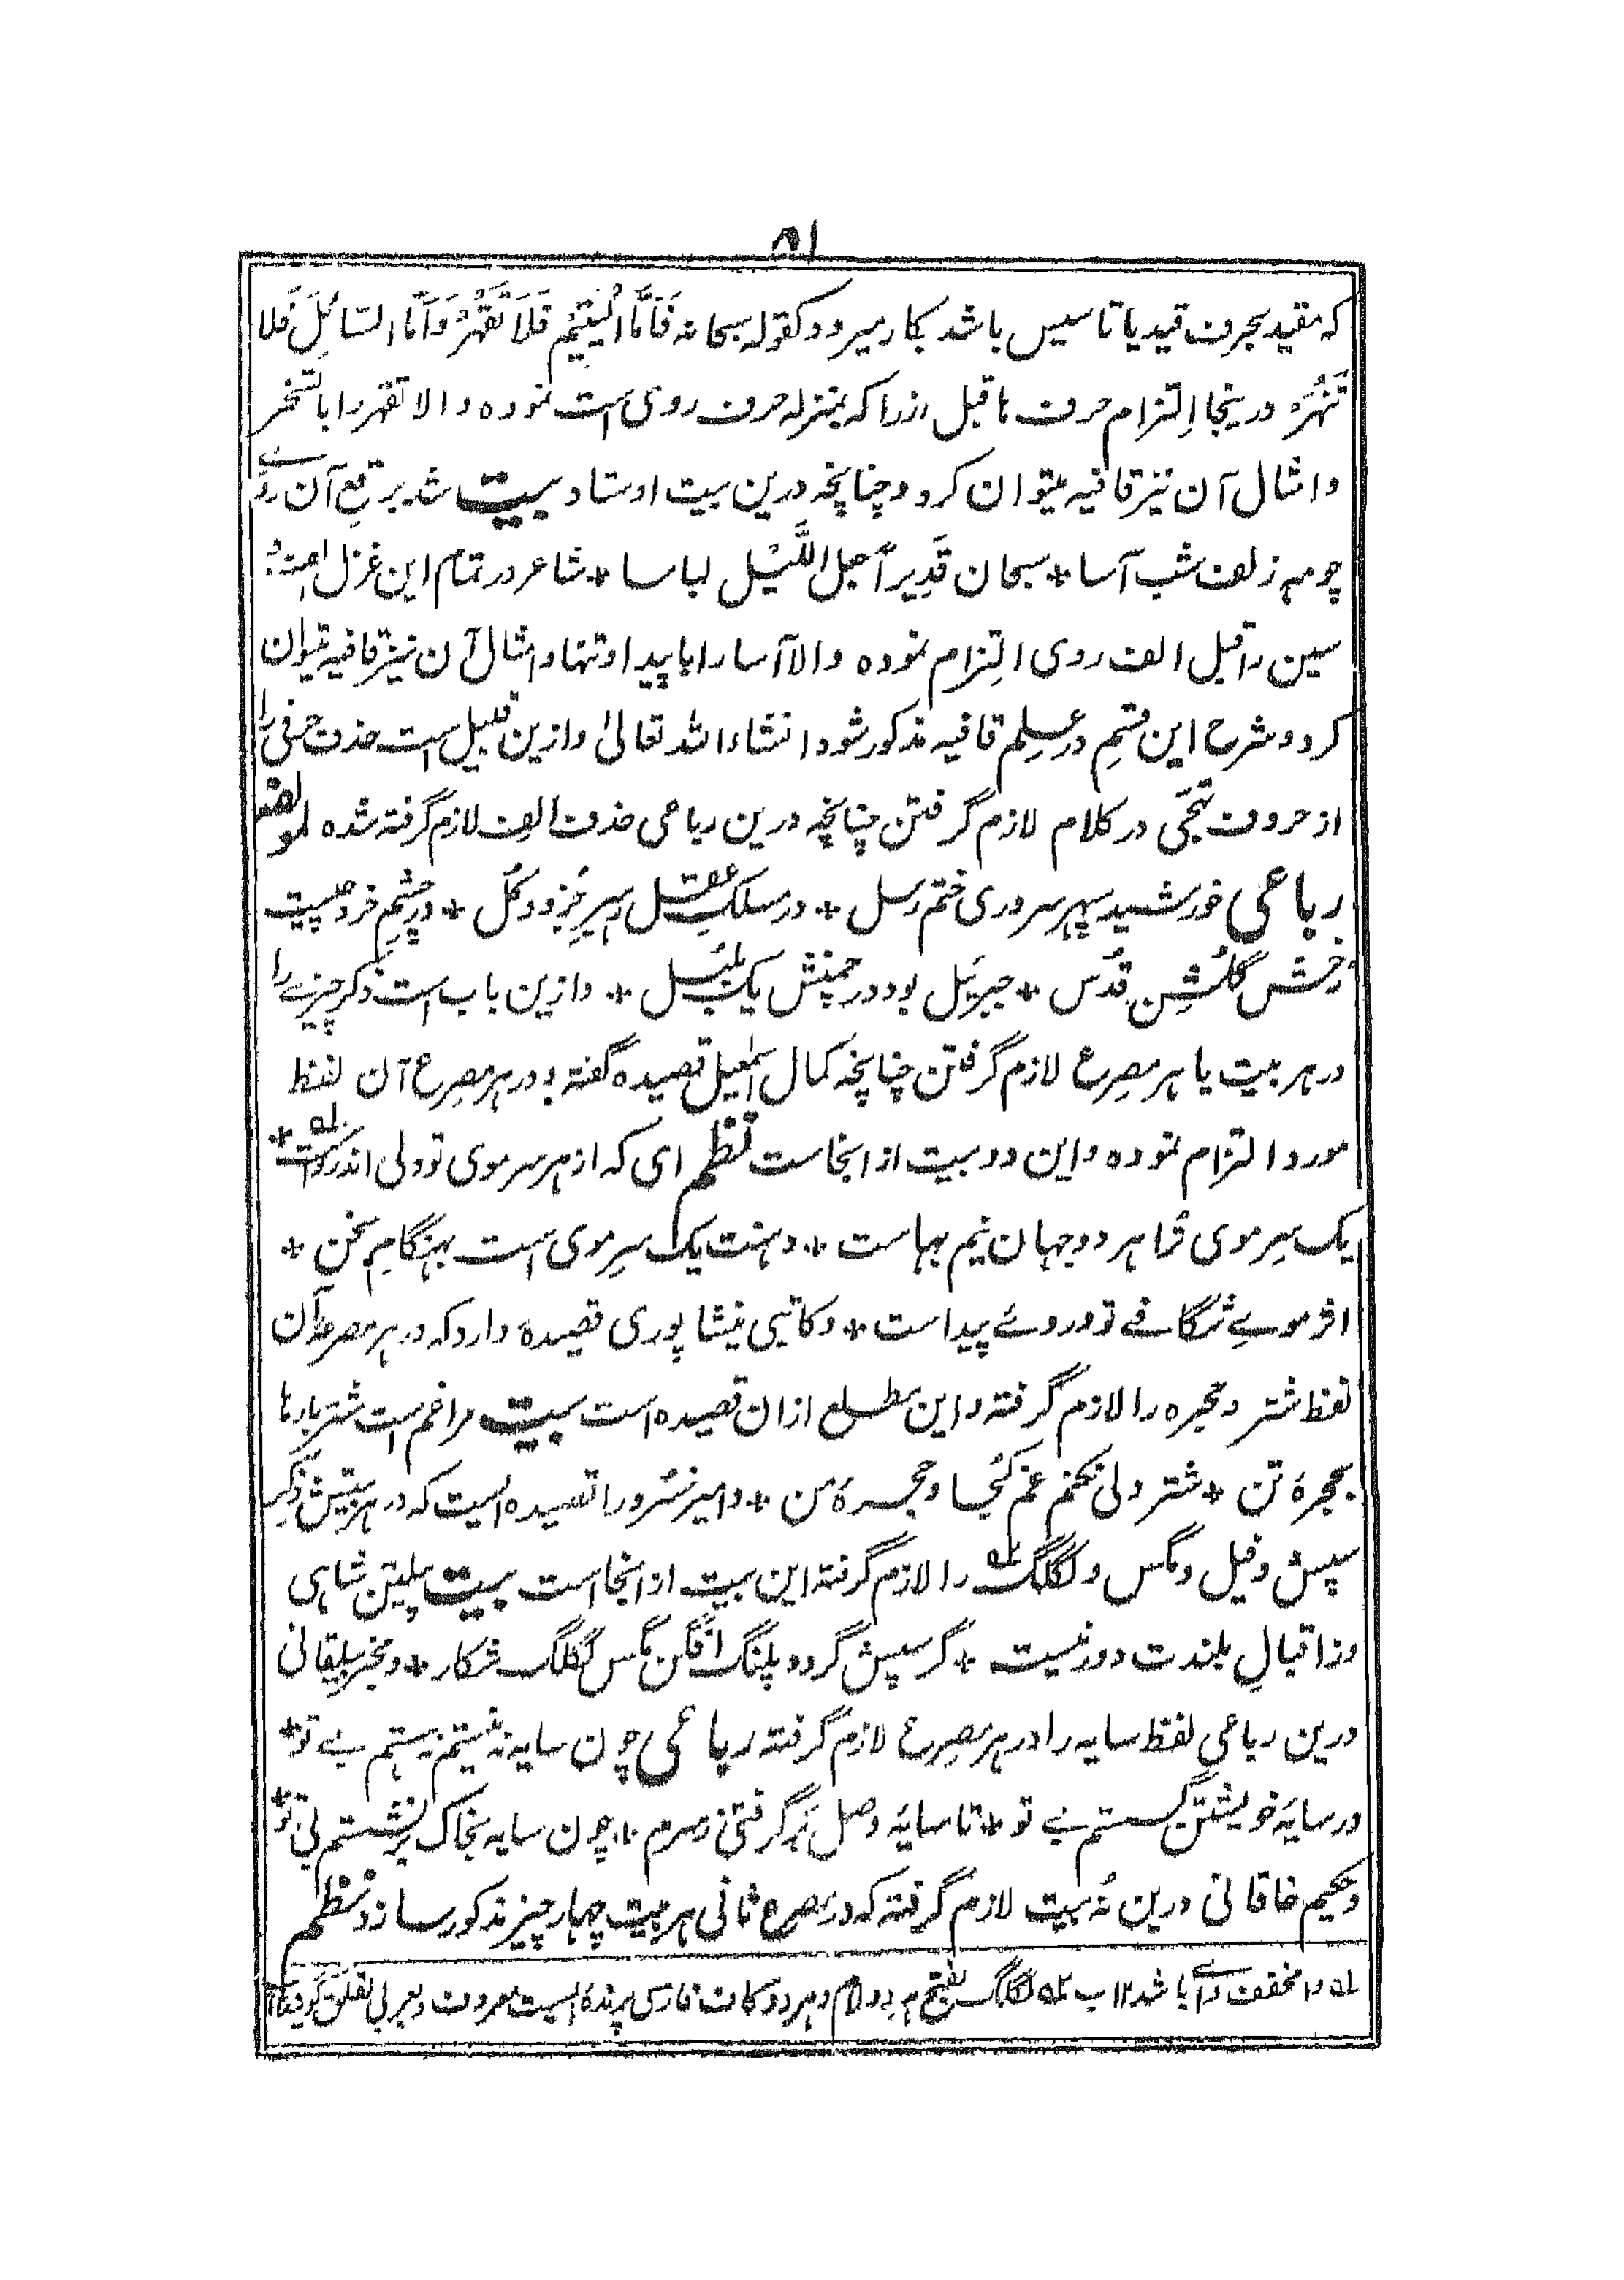 ۵۱
که مقید بحرف قید یا تاسیس باشد بکار میرود کقوله سبحانه فَاَمَّا الْیَتِیْمَ فَلَا تَقْهَرْ وَاَمَّا السَّائِلَ فَلَا
تَنْهَرْ درینجا اِلتزام حرف ما قبل از را که بمنزله حرف روی است نموده و الا تقهر را با تسخر
و امثال آن نیز قافیه میتوان کرد و چنانچه درین بیت اوستاد بیت شد برقع آن روے
چو مه زلف شب آسا * سبحان قَدِیر اً جعل اللَّیْل لباسا * شاعر در تمام این غزل
سین را قبل الف روی التزام نموده والا آسا را با پیدا و تنها و امثال آن نیز قافیه میتوان
کرد و شرح این قسم در علم قافیه مذکور شود انشاء الله تعالیٰ و ازین قبیل است حذف حرفی را
از حروف تہجّی در کلام لازم گرفتن چنانچه درین رباعی حذف الف لازم گرفته شده لمولفه
رباعی خورشید سپهر سروری ختم رسل * در مسلک عقل رهبر جُزو و کُل * در چشم خرد چیست
رخش گلشنِ قُدس * جبرئیل بود در چمنش یک بلبل * و ازین باب است ذکر چیزے را
در هر بیت یا هر مصرع لازم گرفتن چنانچه کمال اسمٰعیل قصیده گفته و در هر مصرع آن لفظ
مو را التزام نموده و این دو بیت از انجاست نظم ای که از هر سر موی تو دلی اندر واست *
یک سرِ موی تُرا هر دو جهان نیم بهاست * دهنت یک سرِ موی است بهنگامِ سخن *
اثر موے شگافے تو در وے پیداست * و کاتبی نیشاپوری قصیده دارد که در هر مصرعه آن
لفظ شتر و حجره را لازم گرفته و این مطلع ازان قصیده است بیت مرا غم است شتر بارها
بحجرهٔ تن * شتر دلی نکنم غم کُجا و حجرهٔ من * و امیر خسرو را قصیده ایست که در هر بیتش ذکر
سپش و فیل و مگس و گلگلگ را لازم گرفته این بیت از انجا است بیت پیلتن شاهی
وز اقبالِ بلندت دور نیست * گر سپش گردد پلنگ افگن مگس گلگلگ شکار * و مخبر بیلقانی
درین رباعی لفظ سایه را در هر مصرع لازم گرفته رباعی چون سایه نه نیستم نه هستم بے تو *
در سایهٔ خویشتن گسستم بے تو * تا سایهٔ وصل بر گرفتی ز سرم * چون سایه بخاک بر نشستم بی تو *
و حکیم خاقانی درین نُه بیت لازم گرفته که در مصرع ثانی هر بیت چهار چیز مذکور سازد نظم
له وا مخفف واے باشد ۱۲ ب ۲ گلگلگ بفتح هر دو لام و هر دو کاف فارسی پرنده ایست معروف و بعربی لقلق گویند